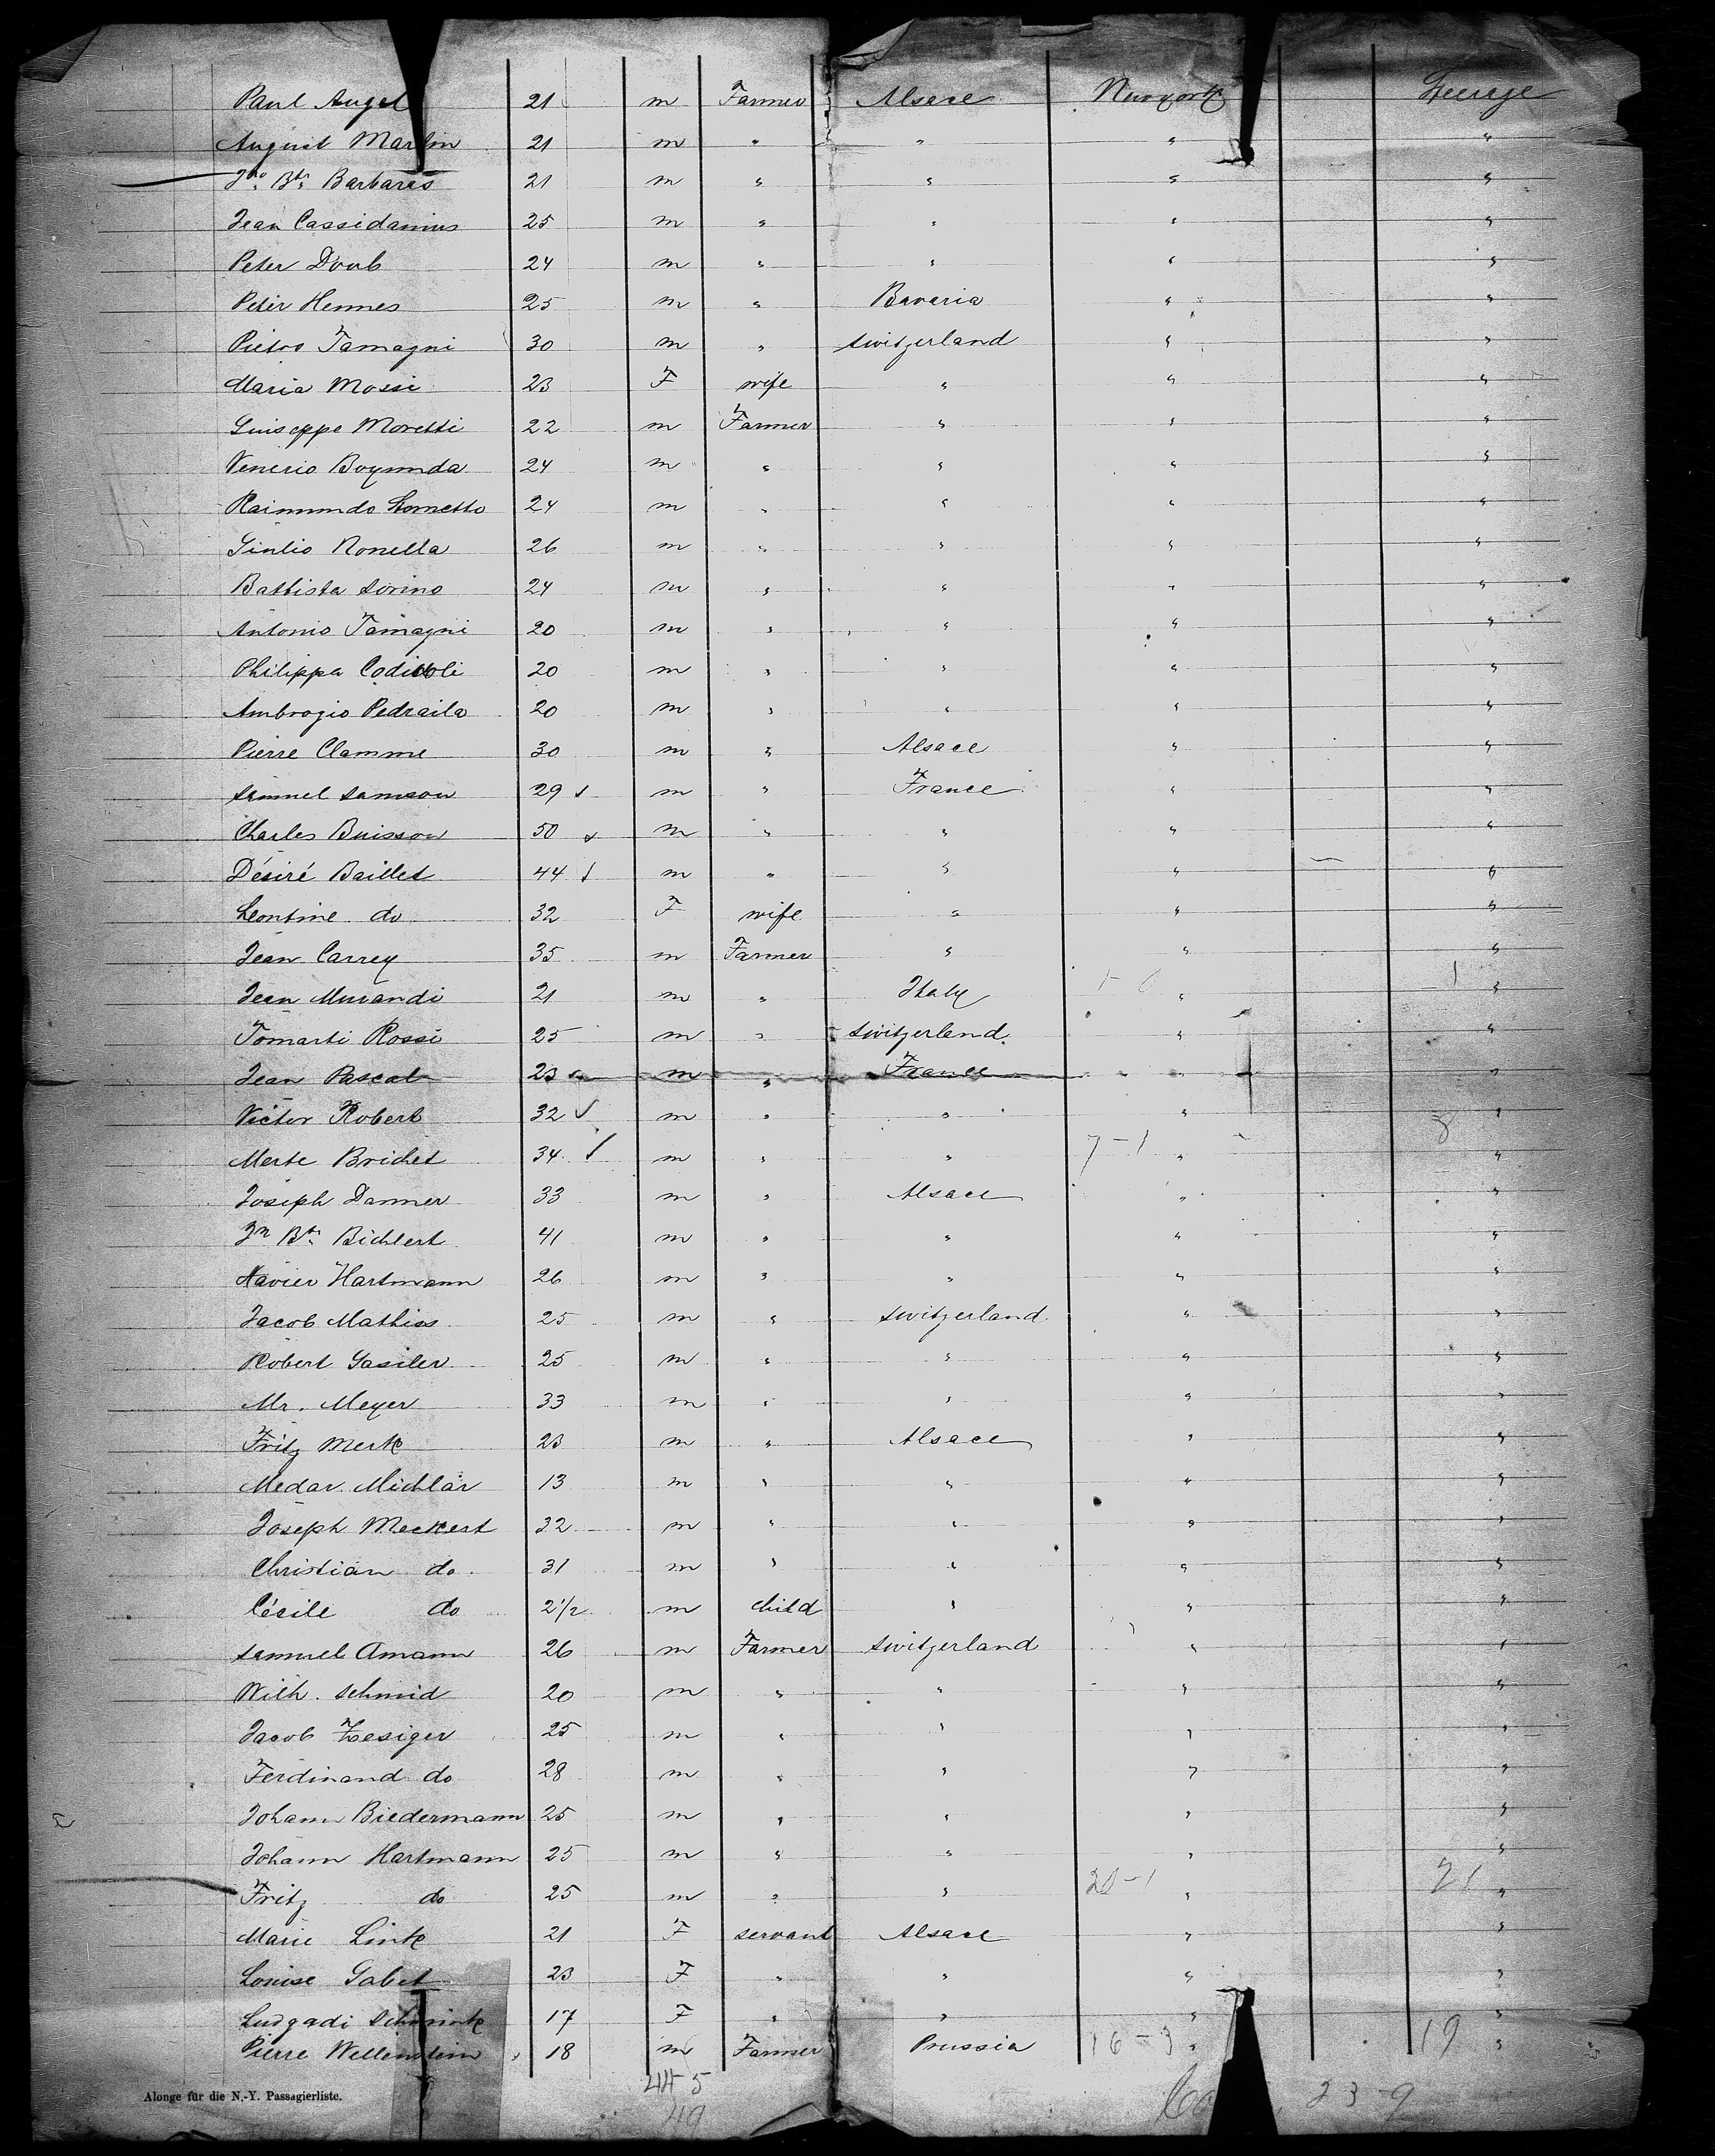 Paul Angel 21 m Farmer Alsace Newyork Steerage
August Martin 21 m " " " "
Jno. Bte. Barbaras 21 m " " " "
Jean Cassidanius 25 m " " " "
Peter Doub 24 m " " " "
Peter Hennes 25 m " Bavaria " "
Pietro Tamagni 30 m " Switzerland " "
Maria Mossi 23 F wife " " "
Guiseppe Moretti 22 m Farmer " " "
Venerio Boyunda 24 m " " " "
Raimundo Lometto 24 m " " " "
Giulio Ronella 26 m " " " "
Battista Sorino 24 m " " " "
Antonio Tamagni 20 m " " " "
Philippa 20 m " " " "
Ambrogio Pedraila 20 m " " " "
Pierre Clamme 30 m " Alsace " "
Samuel Samson 29 ✓ m " France " "
Charles Buisson 50 ✓ m " " " "
Désiré Baillet 44 ✓ m " " " "
Leontine do 32 F wife " " "
Jean Carrey 35 m Farmer " " "
Jean Murandi 21 m " Italy " 1 "
Tomarti Rossi 25 m " Switzerland " "
Jean Pascal 23 m " France " "
Victor Robert 32 ✓ m " " " 8 "
Merte Brichet 34 ✓ m " " 7-1 " "
Joseph Danner 33 m " Alsace " "
Jn Bte. Bichlert 41 m " " " "
Xavier Hartmann 26 m " " " "
Jacob Mathias 25 m " Switzerland " "
Robert Gasiler 25 m " " " "
Mr. Meyer 33 m " " " "
Fritz Merk 23 m " Alsace " "
Medar Michlar 13 m " " " "
Joseph Meckert 32 m " " " "
Christian do 31 m " " " "
Cécile do 2 1/2 m child " " "
Samuel Amann 26 m Farmer Switzerland " "
Wilh. Schmid 20 m " " " "
Jacob Zesiger 25 m " " " "
Ferdinand do 28 m " " " "
Johann Biedermann 25 m " " " "
Johann Hartmann 25 m " " " "
Fritz do 25 m " " 20-1 " 21 "
Marie Link 21 F servant Alsace " "
Louise Gabet 23 F " " " "
Ludgadi 17 F " " " "
Pierre Wellenstein 18 m Farmer Prussia 16-3 " 19 "
44 5
Alonge für die N.-Y. Passagierliste.
49
23-9